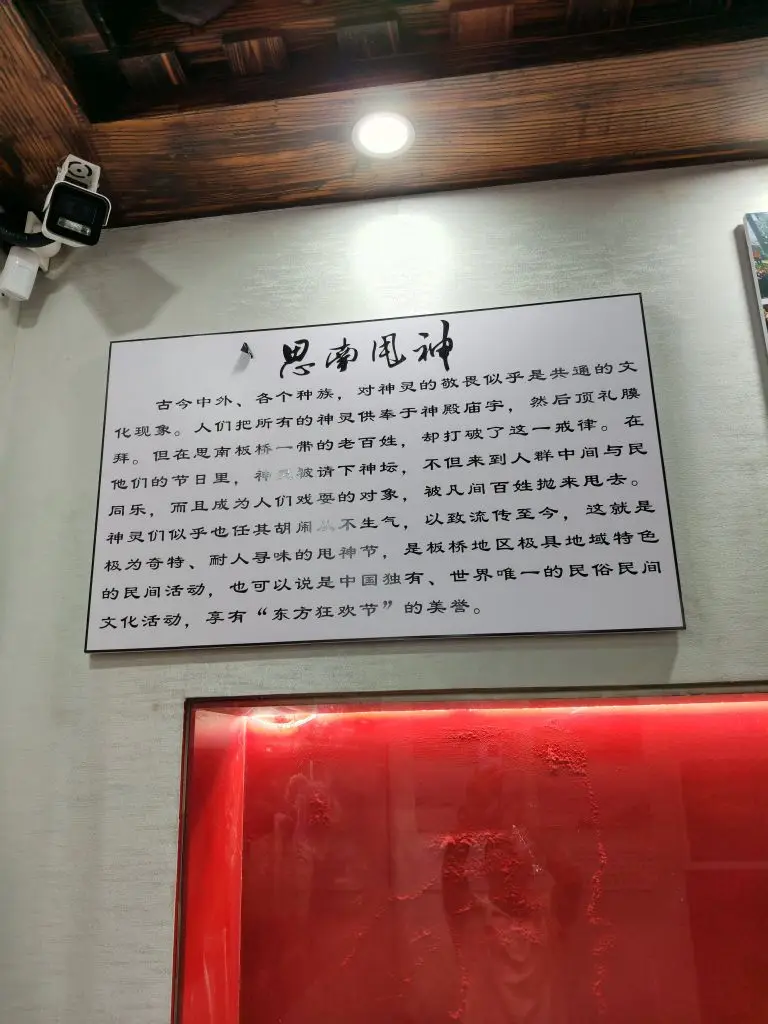 思南甩神
古今中外、各个种族，对神灵的敬畏似乎是共通的文
化现象。人们把所有的神灵供奉于神殿庙宇，然后顶礼膜
拜。但在思南板桥一带的老百姓，却打破了这一戒律。在
他们的节日里，神灵被请下神坛，不但来到人群中间与民
同乐，而且成为人们戏耍的对象，被凡间百姓抛来甩去。
神灵们似乎也任其胡闹从不生气，以致流传至今，这就是
极为奇特、耐人寻味的甩神节，是板桥地区极具地域特色
的民间活动，也可以说是中国独有、世界唯一的民俗民间
文化活动，享有“东方狂欢节”的美誉。